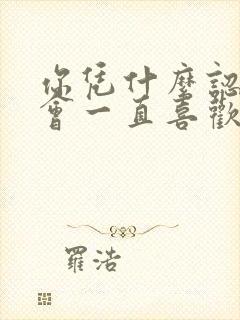 你凭什麼認
會一直喜歡
羅浩